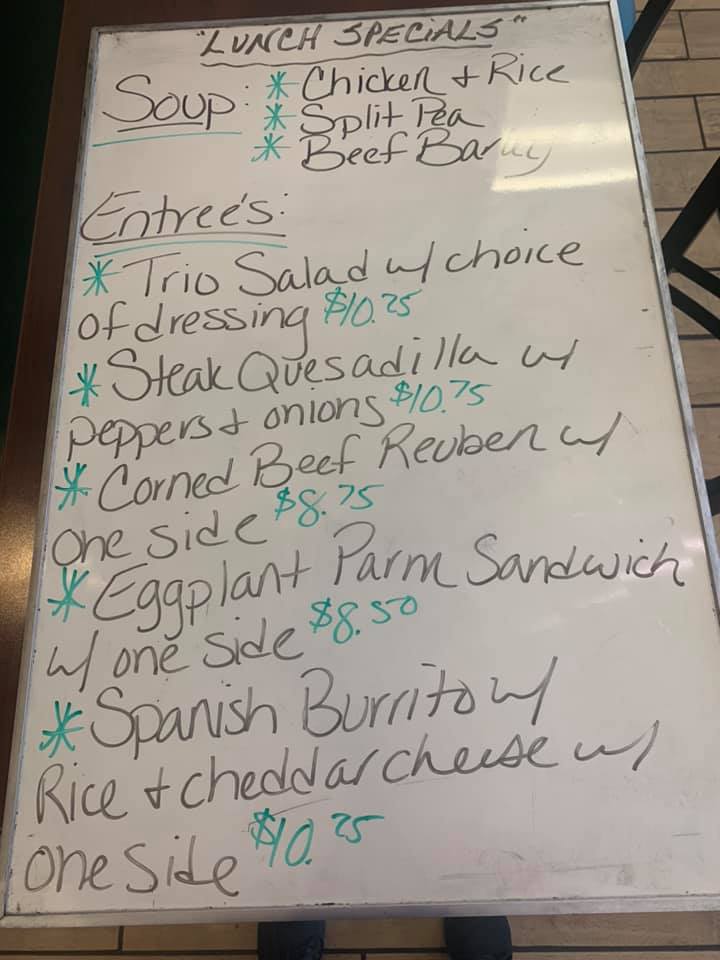 "LUNCH SPECIALS"
Soup: * Chicken + Rice
* Split Pea
* Beef Barley
Entree's:
* Trio Salad w/ choice
of dressing $10.25
* Steak Quesadilla w/
peppers + onions $10.75
* Corned Beef Reuben w/
one side $8.75
* Eggplant Parm Sandwich
w/ one side $8.50
* Spanish Burrito w/
Rice + cheddar cheese w/
one side $10.25